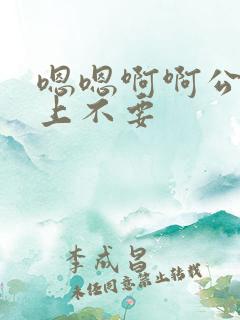 嗯嗯啊啊公
上不要
李成昌
未经同意禁止转载